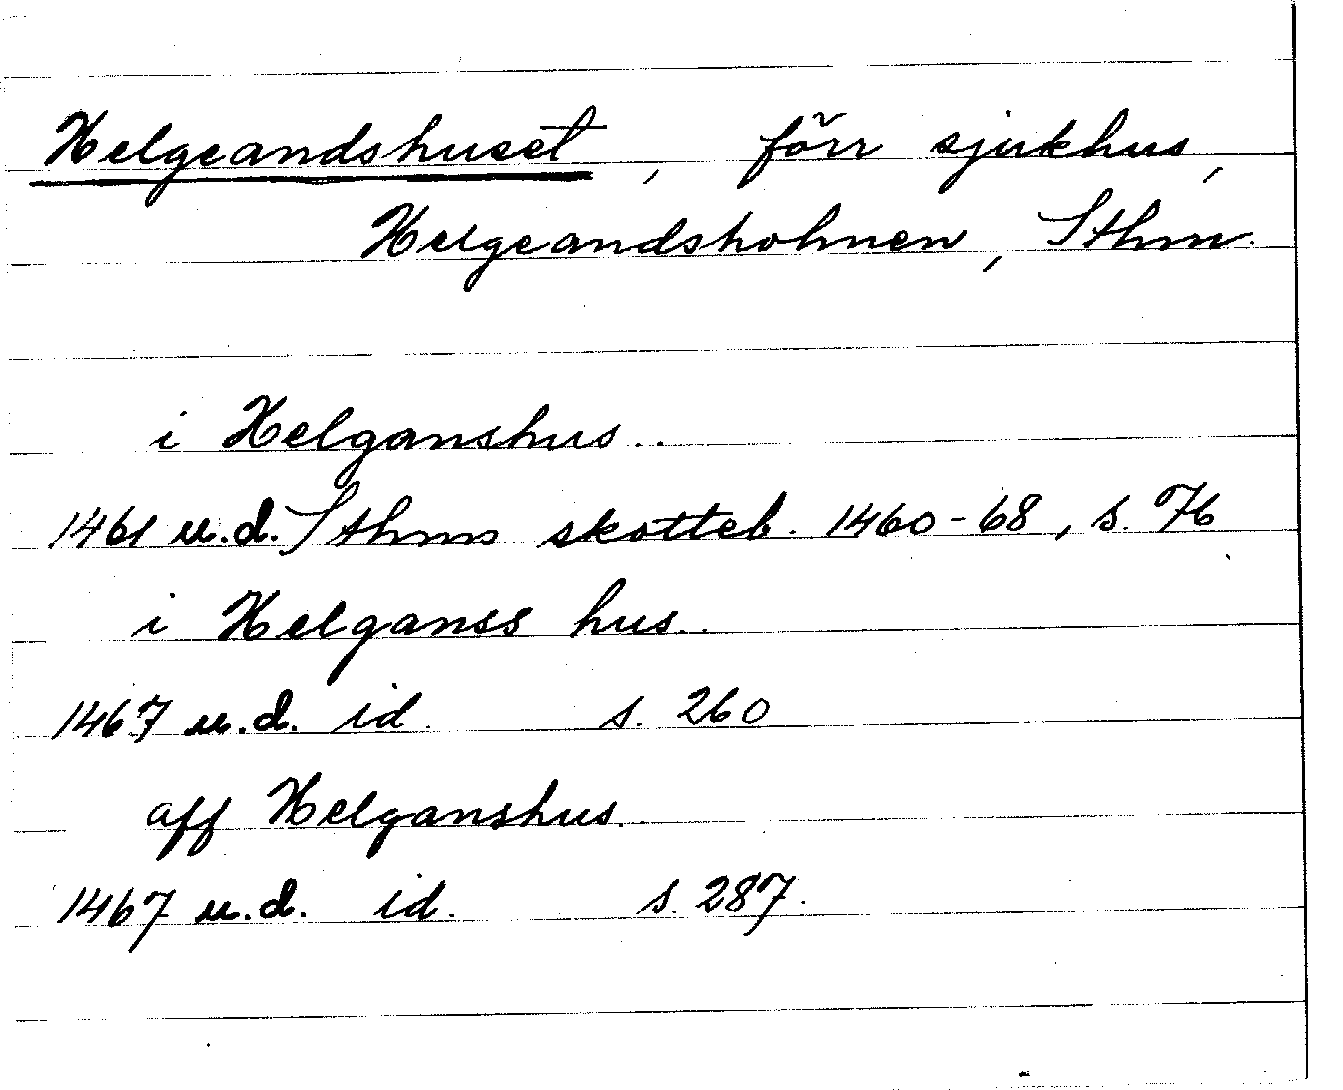 Helgeandshuset, förr sjukhus,
Helgeandsholmen, Sthm.
i Helganshus..
1461 u.d. Sthms skotteb. 1460-68, s. 76
i Helganss hus..
1467 u.d. id. s. 260
aff Helganshus.
1467 u.d. id. s. 287.